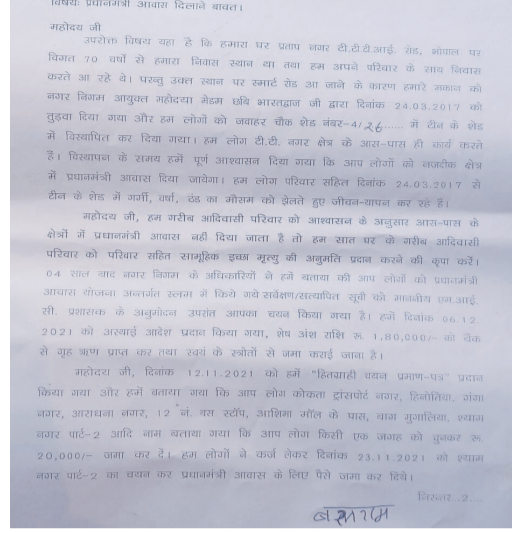 विषयः प्रधानमंत्री आवास दिलाने बाबत।
महोदय जी
उपरोक्त विषय यहा है कि हमारा घर प्रताप नगर टी.टी.टी.आई. रोड, भोपाल पर
विगत 70 वर्षो से हमारा निवास स्थान था तथा हम अपने परिवार के साथ निवास
करते आ रहे थे। परन्तु उक्त स्थान पर स्मार्ट रोड आ जाने के कारण हमारे मकान को
नगर निगम आयुक्त महोदया मेडम छबि भारतद्वाज जी द्वारा दिनांक 24.03.2017 को
तुड़वा दिया गया और हम लोगों को जवाहर चौक शेड नंबर-4/26...... में टीन के शेड
में विस्थापित कर दिया गया। हम लोग टी.टी. नगर क्षेत्र के आस-पास ही कार्य करते
हैं। विस्थापन के समय हमें पूर्ण आश्वासन दिया गया कि आप लोगों को नजदीक क्षेत्र
में प्रधानमंत्री आवास दिया जावेगा। हम लोग परिवार सहित दिनांक 24.03.2017 से
टीन के शेड में गर्मी, वर्षा, ठंड का मौसम को झेलते हुए जीवन-यापन कर रहे हैं।
महोदय जी, हम गरीब आदिवासी परिवार को आश्वासन के अनुसार आस-पास के
क्षेत्रों में प्रधानमंत्री आवास नहीं दिया जाता है तो हम सात घर के गरीब आदिवासी
परिवार को परिवार सहित सामूहिक इच्छा मृत्यु की अनुमति प्रदान करने की कृपा करें।
04 साल बाद नगर निगम के अधिकारियों ने हमें बताया की आप लोगों को प्रधानमंत्री
आवास योजना अन्तर्गत स्लम में किये गये सर्वेक्षण/सत्यापित सूची को माननीय एम.आई.
सी. प्रशासक के अनुमोदन उपरांत आपका चयन किया गया है। हमें दिनांक 06.12.
2021 को अस्थाई आदेश प्रदान किया गया, शेष अंश राशि रू. 1,80,000/- को बैंक
से गृह ऋण प्राप्त कर तथा स्वयं के स्त्रोतों से जमा कराई जाना है।
महोदय जी, दिनांक 12.11.2021 को हमें "हितग्राही चयन प्रमाण-पत्र" प्रदान
किया गया और हमें बताया गया कि आप लोग कोकता ट्रांसपोर्ट नगर, हिनोतिया, गंगा
नगर, आराधना नगर, 12 नं. बस स्टॉप, आशिमा मॉल के पास, बाग मुगालिया, श्याम
नगर पार्ट-2 आदि नाम बताया गया कि आप लोग किसी एक जगह को चुनकर रू.
20,000/- जमा कर दें। हम लोगों ने कर्ज लेकर दिनांक 23.11.2021 को श्याम
नगर पार्ट-2 का चयन कर प्रधानमंत्री आवास के लिए पैसे जमा कर दिये।
निरन्तर...2...